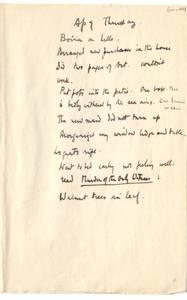 Ap 9 Thursday
Boiria a hello.
Arranged new purchases in the house
Did two pages of Art. couldn't
work.
Put pots into the patio. One rose-tree
is badly withered by the sea airs.
The new maid did not turn up
Reorganized my window ledge and table.
Loquats ripe.
Went to bed early not feeling well.
read Murder of the Only Witness:
Walnut trees in leaf.